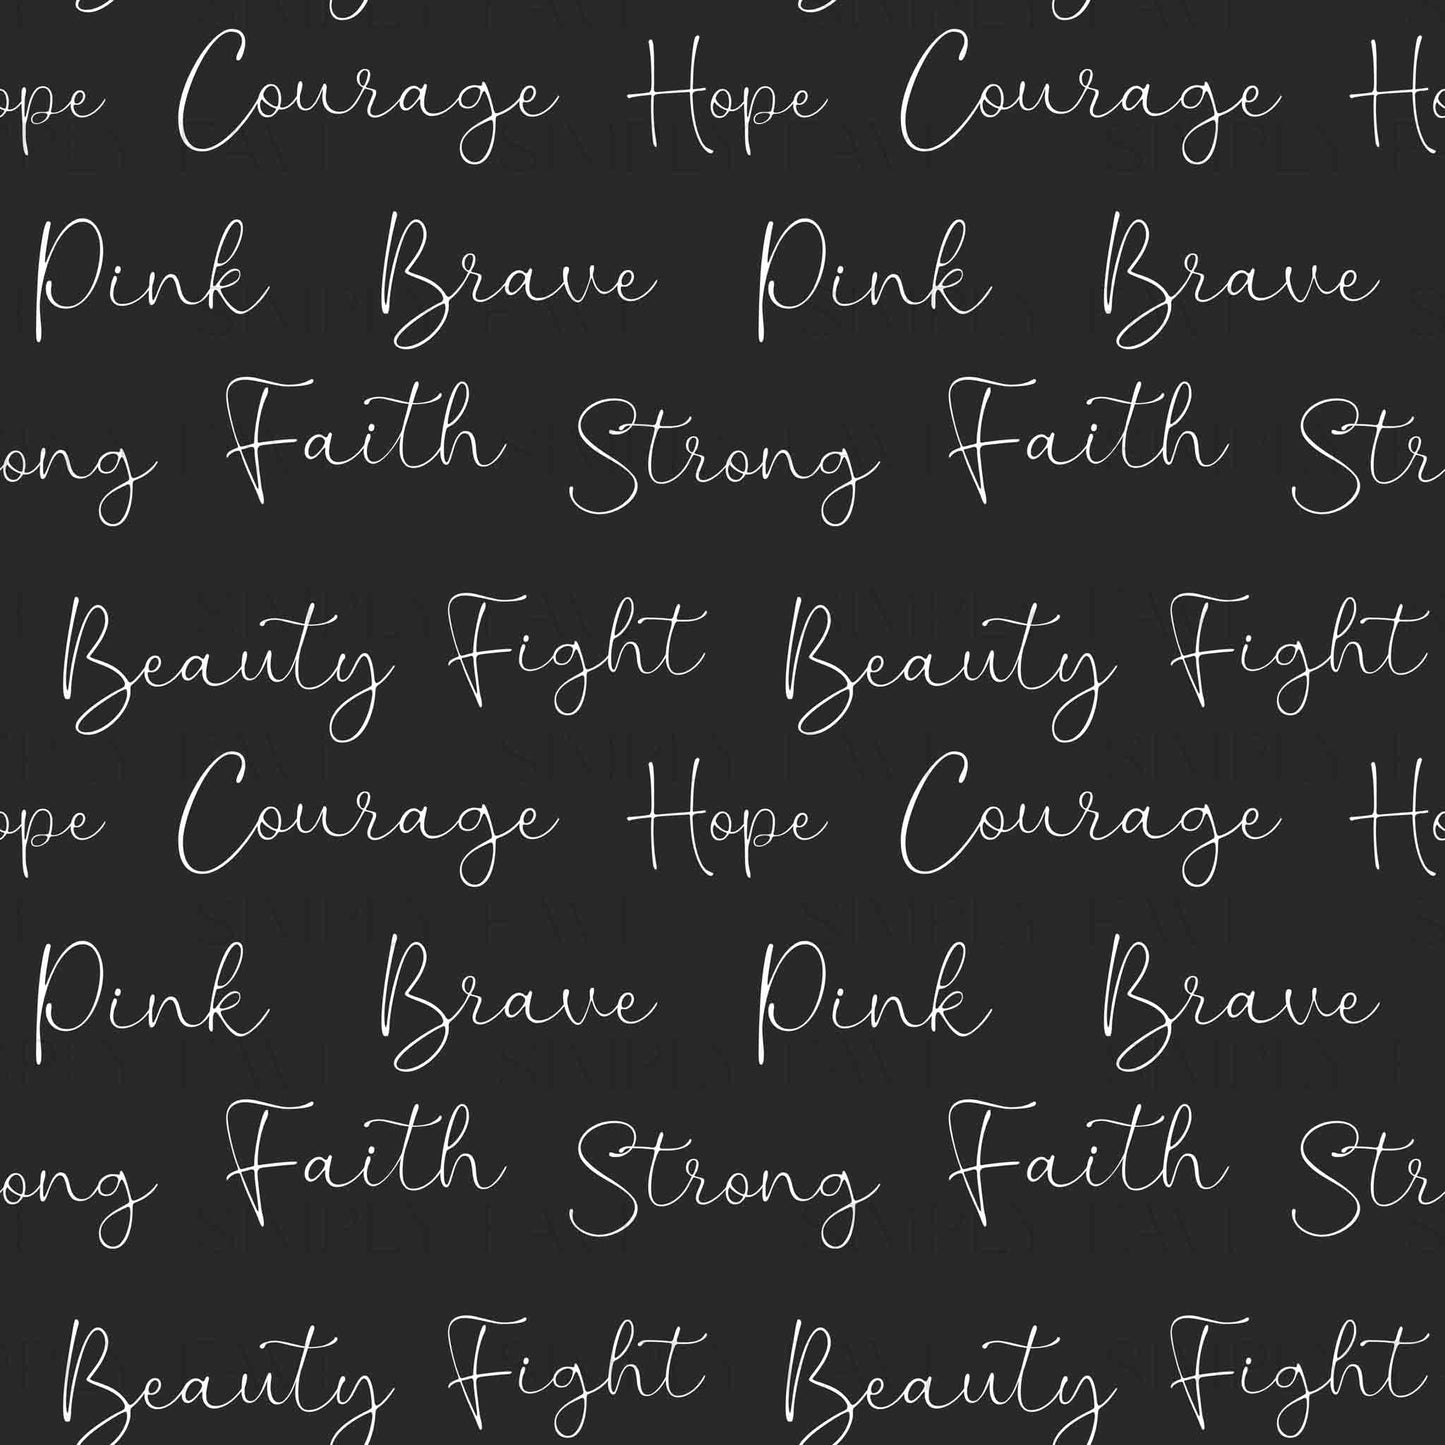 ope Courage Hope Courage Ho
Pink Brave Pink Brave
ong Faith Strong Faith Str
Beauty Fight Beauty Fight
ope Courage Hope Courage Ho
Pink Brave Pink Brave
ong Faith Strong Faith Str
Beauty Fight Beauty Fight